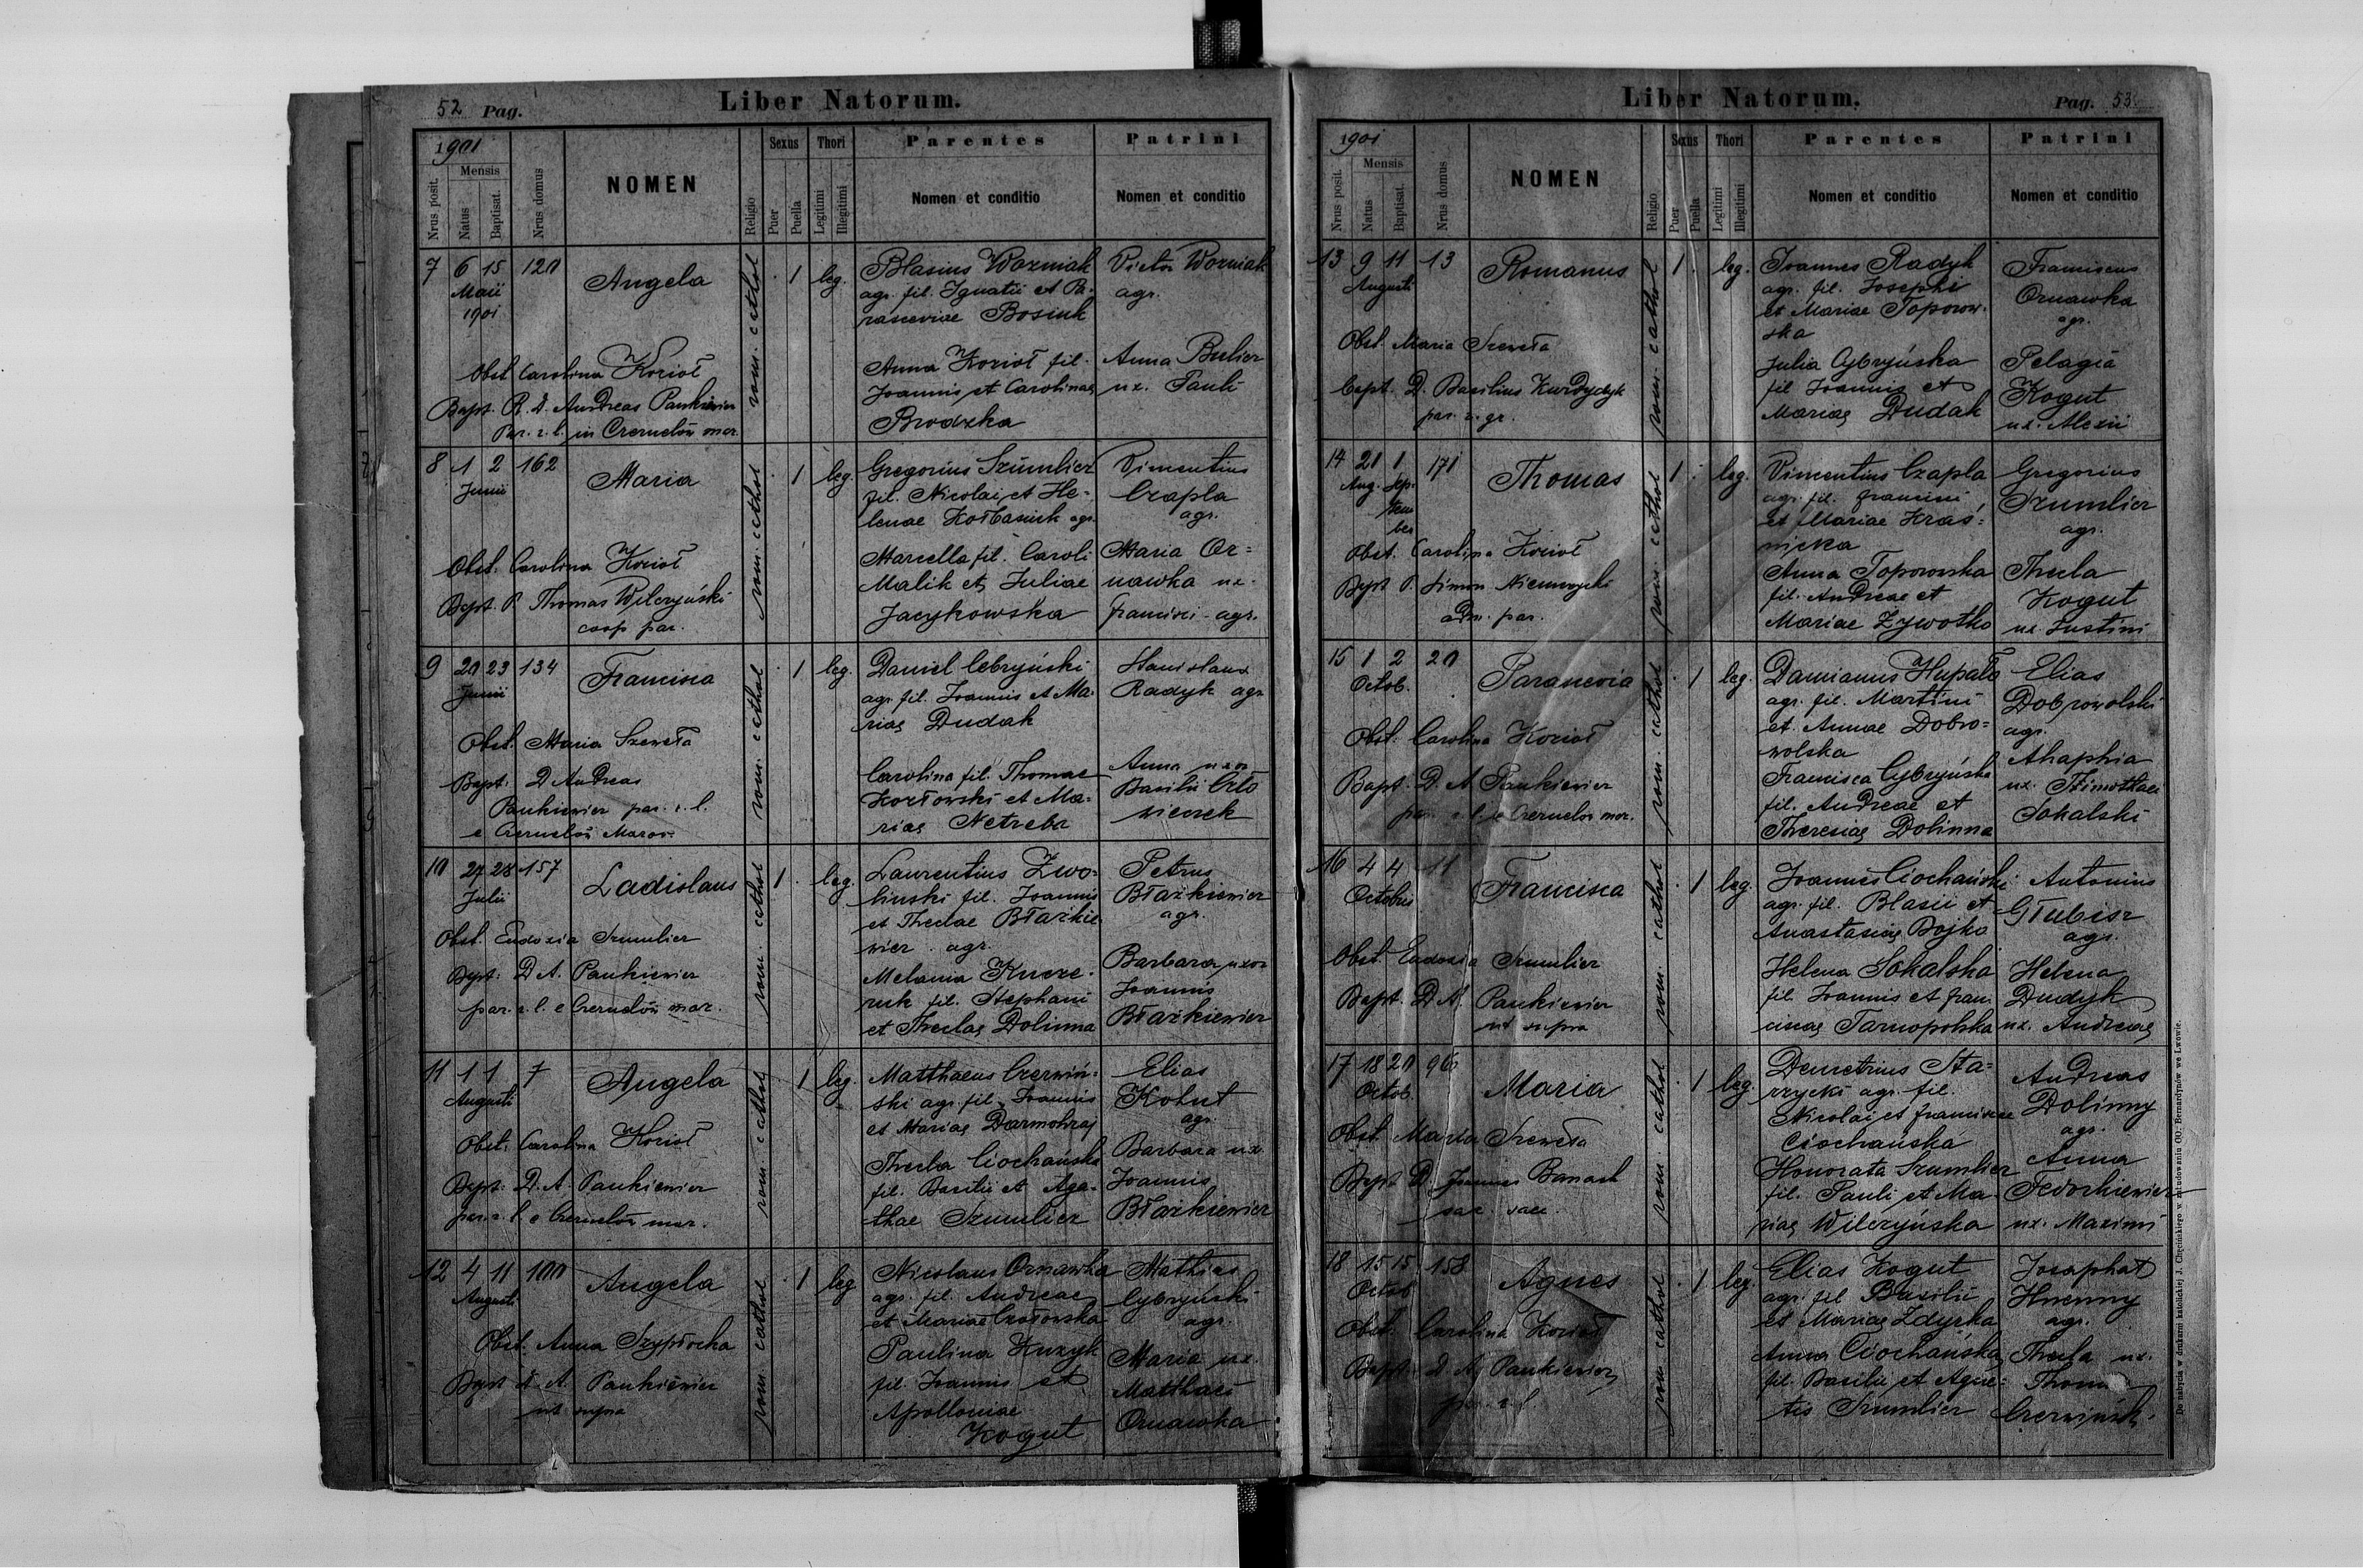 52 Pag.
Liber Natorum.
1901
Nrus posit.
Mensis
Natus
Baptisat.
Nrus domus
NOMEN
Religio
Sexus
Puer
Puella
Thori
Legitimi
Illegitimi
Parentes
Nomen et conditio
Patrini
Nomen et conditio
7 6 15 120
Maii
1901
Angela
rom. cathol
1 leg.
Blasius Wozniak
agr. fil. Ignatii et Pa-
rasceviae Bosiuk
Anna Kozioł fil.
Joannis et Carolinae
Brodzka
Victor Wozniak
agr.
Anna Bulier
ux. Pauli
Obst Carolina Kozioł
Bapt. R. D. Andreas Pankiewicz
Par. r. l. in Czernelów maz.
8 1 2 162
Junii
Maria
rom. cathol
1 leg.
Gregorius Szumlier
fil. Nicolai et He-
lenae Kołbasiuk agr.
Marcella fil. Caroli
Malik et Juliae
Jacykowska
Vincentius
Czapla
agr.
Maria Or=
nawka ux.
Francisci agr.
Obst. Carolina Kozioł
Bapt. P. Thomas Wilczyński
coop par.
9 20 23 134
Junii
Francisca
rom. cathol
1 leg.
Daniel Cebryński
agr. fil. Joannis et Ma-
riae Dudak
Carolina fil. Thomae
Kozłowski et Ma-
riae Netreba
Stanislaus
Radyk agr
Anna uxor
Basilii Czło
wieczek
Obst. Maria Szeweła
Bapt. D Andreas
Pankiewicz par. r. l.
e Czernelów Mazow.
10 27 28 157
Julii
Ladislaus
rom. cathol
1 leg.
Laurentius Zwo-
linski fil. Joannis
et Theclae Błażkie
wicz agr.
Melania Kucze-
ruk fil. Stephani
et Theclae Dolinna
Petrus
Błażkiewicz
agr.
Barbara uxor
Joannis
Błażkiewicz
Obst. Eudoxia Szumlier
Bapt: D A. Pankiewicz
par. r. l. e Czernelów maz.
11 1 1 7
Augusti
Angela
rom. cathol
1 leg.
Matthaeus Czerwiń-
ski agr. fil. Joannis
et Mariae Darmohraj
Thecla Ciochańska
fil. Basilii et Aga-
thae Szumlier
Elias
Kohut
agr.
Barbara ux
Joannis
Błażkiewicz
Obst. Carolina Kozioł
Bapt: D. A. Pankiewicz
par. r. l. e Czernelów maz.
12 4 11 100
Augusti
Angela
rom. cathol
1 leg
Nicolaus Ornawka
agr. fil. Andreae
et Mariae Czołowska
Paulina Kuzyk
fil. Joannis et
Apolloniae
Kogut
Mathias
Cybryński
agr.
Maria ux.
Matthaei
Ornawka
Obst. Anna Szypłocka
Bapt D. A. Pankiewicz
ut supra
Liber Natorum.
Pag. 53.
1901
Nrus posit.
Mensis
Natus
Baptisat.
Nrus domus
NOMEN
Religio
Sexus
Puer
Puella
Thori
Legitimi
Illegitimi
Parentes
Nomen et conditio
Patrini
Nomen et conditio
13 9 11 13
Augusti
Romanus
rom. cathol
1 leg.
Joannes Radyk
agr. fil. Josephi
et Mariae Toporow-
ska
Julia Cybryńska
fil Joannis et
Mariae Dudak
Franciscus
Ornawka
agr.
Pelagia
Kogut
ux. Alexii
Obst. Maria Szeweła
Bapt. D. Basilius Kurdydyk
par. r. gr.
14 21 1 171
Aug. Sep-
tem
ber
Thomas
rom. cathol
1 leg.
Vincentius Czapla
agr. fil. Francisci
et Mariae Kraś-
nicka
Anna Toporowska
fil. Andreae et
Mariae Żywotko
Gregorius
Szumlier
agr.
Thecla
Kogut
ux. Justini
Obst. Carolina Kozioł
Bapt P. Simon
adm. par.
15 1 2 20
Octob.
Parascevia
rom. cathol
1 leg.
Damianus Hupało
agr. fil. Martini
et Annae Dobro=
wolska
Francisca Cybryńska
fil. Andreae et
Theresiae Dolinna
Elias
Dobrowolski
agr.
Ahaphia
ux. Thimothaei
Sokalski
Obst. Carolina Kozioł
Bapt. D. A Pankiewicz
par. r. l. e Czernelów maz.
16 4 4 11
Octobris
Francisca
rom. cathol
1 leg.
Joannes Ciochański
agr. fil. Blasii et
Anastasiae Bojko
Helena Sokalska
fil. Joannis et Fran-
ciscae Tarnopolska
Antonius
Głubisz
agr.
Helena
Dudyk
ux. Andreae
Obst Eudoxia Szumlier
Bapt. D A. Pankiewicz
ut supra
17 18 20 96
Octob.
Maria
rom. cathol
1 leg.
Demetrius Sta-
rzycki agr. fil.
Nicolai et Franciscae
Ciochańska
Honorata Szumlier
fil. Pauli et Ma-
riae Wilczyńska
Andreas
Dolinny
agr.
Anna
Fedorkiewicz
ux. Maximi
Obst Maria Szeweła
Bapt D. Joannes Banach
sac.
18 15 15 158
Octob
Agnes
rom cathol
1 leg.
Elias Kogut
agr. fil Basilii
et Mariae Zdyrka
Anna Ciochańska
fil. Basilii et Agne-
tis Szumlier
Josaphat
Hnenny
agr.
Thecla ux.
Thom
Czerwińsk.
Obst. Carolina Kozioł
Bapt. D. A. Pankiewicz
par. r. l.
Do nabycia w drukarni katolickiej J. Chęcińskiego w zabudowaniu OO. Bernardynów we Lwowie.